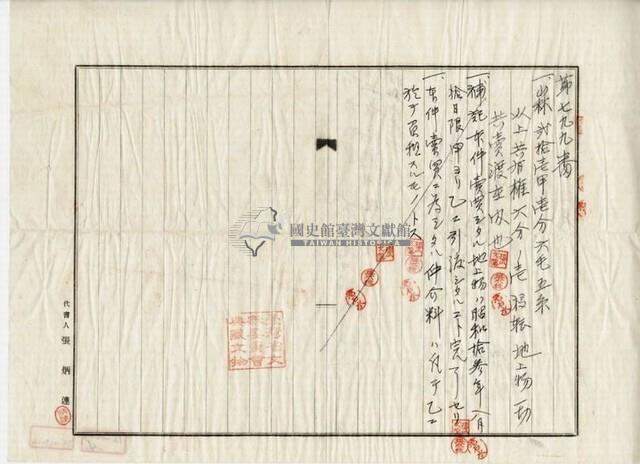 第七九九番
一、山林弐拾壱甲壱分六毛五糸
以上共有権六分ノ壱及耘地上物一切
共売渡並以也
一、補記本件売買シタル地上物ハ昭和拾参年八月
拾日限甲ヨリ乙ニ引渡シタルコト完了セリ
一、本件売買ニ為シタル仲介料ハ凡テ乙ニ
於テ負担スルモノトス
國史館臺灣文獻館
TAIWAN HISTORICA
代書人 張炳連